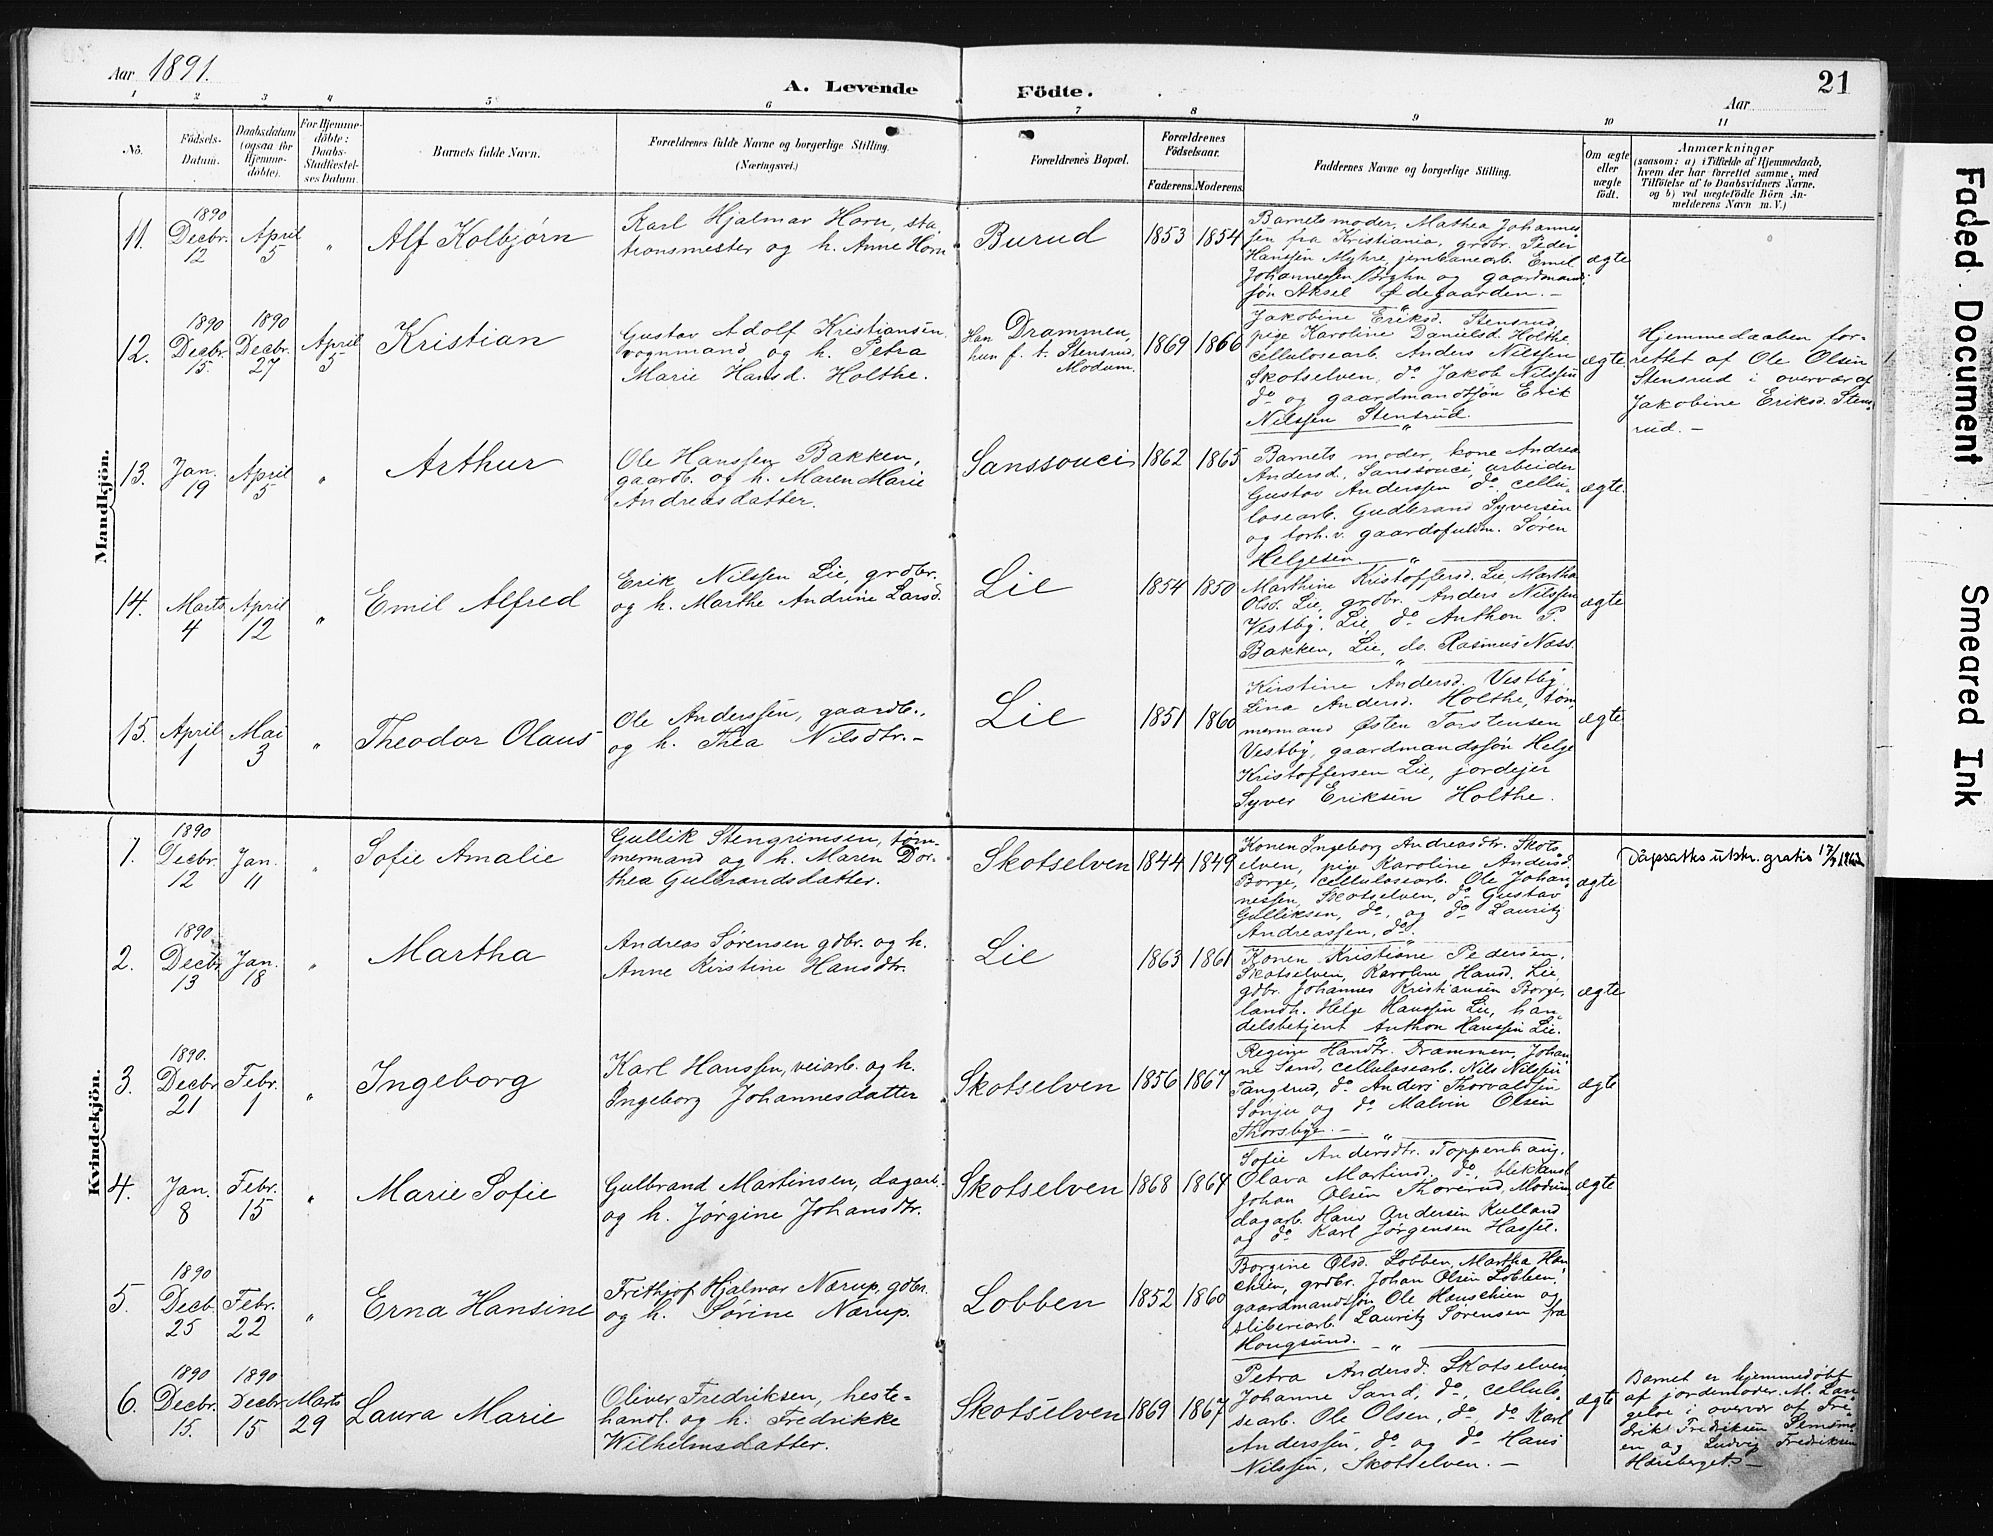 Aar 1891.
A. Levende Födte.
21
Aar
1 2 3 4 5 6 7 8 9 10 11
No.
Födsels-Datum.
Daabsdatum (ogsaa for Hjemme-döbte).
For Hjemme-döbte: Daabs-Stadfæstel-ses Datum.
Barnets fulde Navn.
Forældrenes fulde Navne og borgerlige Stilling.
(Næringsvei.)
Forældrenes Bopæl.
Forældrenes Födselsaar.
Faderens. Moderens.
Faddernes Navne og borgerlige Stilling.
Om ægte eller uægte födt.
Anmærkninger
(saasom: a) i Tilfælde af Hjemmedaab, hvem der har forrettet samme, med Tilföielse af to Daabsvidners Navne, og b) ved uægtefödte Börn An-melderens Navn m. V.)
Mandkjön.
11.
1890 Decbr. 12
April 5
"
Alf Kolbjørn
Karl Hjalmar Horn, sta-
tionsmester og h. Anne Horn
Burud
1853 1854
Barnets moder, Mathea Johannes-
sen fra Kristiania, grdbr. Peder
Hanssen Myhre, jernbanearb. Emil
Johannessen Bryhn og gaardmands-
søn Aksel Ødegaarden. –
ægte
12.
1890 Decbr. 15
1890 Decbr. 27
April 5
Kristian
Gustav Adolf Kristiansen
vognmand og h. Petra
Marie Hansd. Holthe.
Han Drammen,
hun f. t. Stensrud
Modum.
1869 1866
Jakobine Eriksd. Stensrud
pige Karoline Danielsd. Holthe
cellulosearb. Anders Nilssen
Skotselven, do Jakob Nilssen
do og gaardmandssøn Erik
Nilssen Stensrud.
ægte
Hjemmedaaben for-
rettet af Ole Olsen
Stensrud i overvær af
Jakobine Eriksd. Stens-
rud. –
13.
Jan. 19
April 5
"
Arthur
Ole Hanssen Bakken,
gaardb. og h. Maren Marie
Andreasdatter.
Sanssouci
1862 1865
Barnets moder, kone Andrea
Andersd. Sanssouci, arbeider
Gustav Anderssen do, cellu-
losearb. Gudbrand Syversen
og forh. v. gaardsfuldm. Søren
Helgesen
ægte.
14.
Marts 4
April 12
"
Emil Alfred
Erik Nilssen Lie, grdbr.
og h. Marthe Andrine Larsd.
Lie
1854 1850
Marthine Kristoffersd. Lie, Martha
Olsd. Lie, grdbr. Anders Nilssen
Vestby, Lie, do Anthon P.
Bakken, Lie, do. Rasmus Næss.
ægte
15.
April 1
Mai 3
"
Theodor Olaus
Ole Anderssen, gaardb.,
og h. Thea Nilsdtr. –
Lie
1851 1860
Kirstine Andersd. Vestby
Lina Andersd. Holthe, tøm-
mermand Østen Torstensen
Vestby, gaardmandssøn Helge
Kristoffersen Lie, jordejer
Syver Eriksen Holthe.
ægte
Kvindekjön.
1.
1890 Decbr. 12
Jan. 11
"
Sofie Amalie
Gullik Stengrimsen, tøm-
mermand og h. Maren Dor-
thea Gulbrandsdatter.
Skotselven
1844 1849
Konen Ingeborg Andreasdtr. Skots-
elven, pige Karoline Andersd.
Borge, cellulosearb. Ole Johan-
nessen, Skotselven, do Gustav
Gulliksen, do, og do Lauritz
Andreassen, do.
ægte
Dåpsattest utskr. gratis
2.
1890 Decbr. 13
Jan. 18
"
Martha
Andreas Sørensen gdbr. og h.
Anne Kirstine Hansdtr.
Lie
1863 1861
Konen Kristiane Pedersen,
Skotselven, Karoline Hansd. Lie,
gdbr. Johannes Kristiansen Borge,
landh. Helge Hanssen Lie, han-
delsbetjent Anthon Hanssen Lie.
ægte
3.
1890. Decbr. 21
Febr. 1
"
Ingeborg
Karl Hanssen, veiarb. og h.
Ingeborg Johannesdatter
Skotselven
1856 1867
Regine Handtr. Drammen, Johan-
ne Sand, cellulosearb. Nils Nilssen
Tangerud, do Anders Thorvaldsen
Sønju og do Malvin Olsen
Thorsbye. –
ægte
4.
Jan. 8
Febr. 15
"
Marie Sofie
Gulbrand Martinsen, dagarb.
og h. Jørgine Johansdtr.
Skotselven
1868 1864
Sofie Andersdtr. Toppenhaug,
Olava Martinsd. do, blikkensl.
Johan Olsen Thorerud, Modum,
dagarb. Hans Andersen Kulland
og do Karl Jørgensen Hassel.
ægte
5.
1890 Decb. 25
Febr. 22
"
Erna Hansine
Frithjof Hjalmar Nærup, gdbr.
og h. Sørine Nærup.
Lobben
1852 1860
Borgine Olsd. Lobben, Martha Han-
chien, grdbr. Johan Olsen Lobben,
gaardmandssøn Ole Hanschien og
sliberiarb. Lauritz Sørensen fra
Hougsund.
6.
1890 Decbr. 15.
1890 Decbr. 15
Marts 29
Laura Marie
Oliver Fredriksen, heste-
handl. og h. Fredrikke
Wilhelmsdatter.
Skotselven
1869 1867
Petra Andersd. Skotselven
Johanne Sand, do, cellulo-
searb. Ole Olsen, do, do Karl
Anderssen, do og do Hans
Nilssen, Skotselven. –
ægte
Barnet er hjemmedøbt
af jordemoder M. Lan-
geloe i overvær af Fre-
drik Fredriksen
en og Ludvig Fredriksen
Faded Document
Smeared Ink